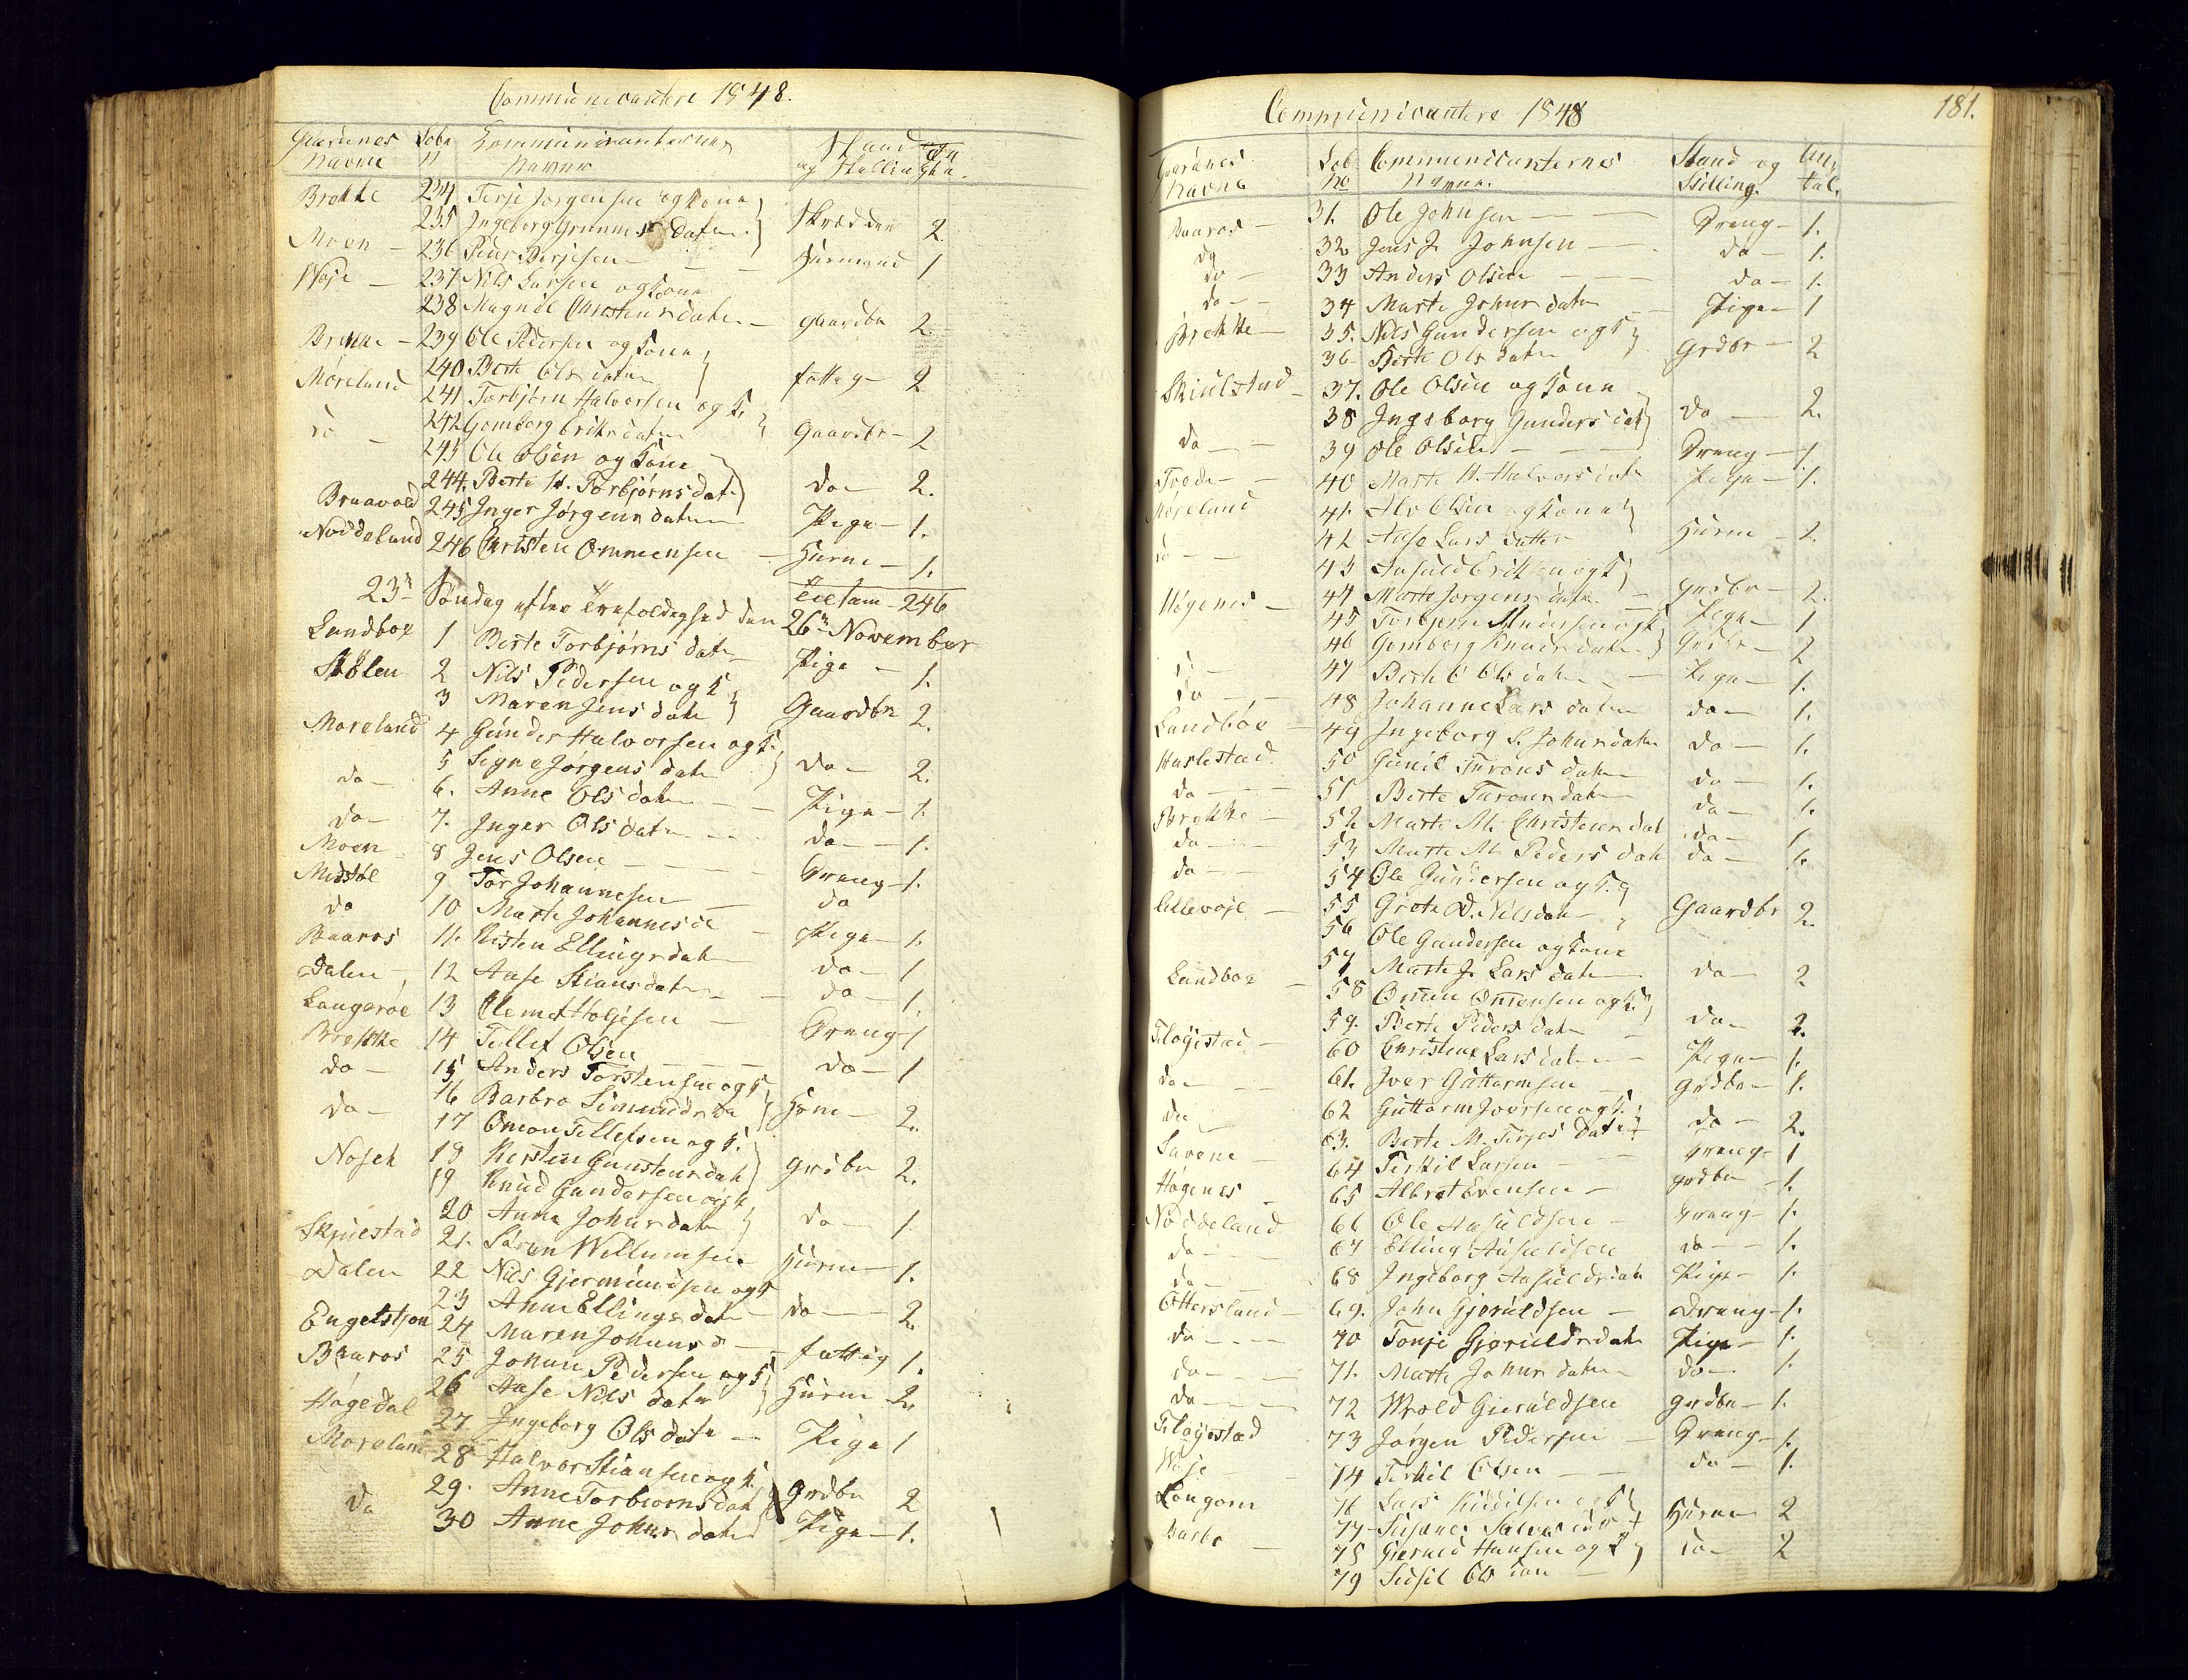 Communicantere 1848.
Gaardenes Navne Løbe N Kommunikanternes Navne Stand og Stilling
Brekke 234 Terje Jørgensen og Kone
235 Ingeborg Gunnersdatter Skrædder 2.
Moen - 236 Peder Terjesen - Huusmand 1
Woje - 237 Nils Larsen og Kone
238 Magnil Christensdatter - Gaardbr 2.
Brekke - 239 Ole Pedersen og Kone
240 Berte Olsdatter fattig - 2
Møreland 241 Torbjørn Halvorsen og K.
242 Gomborg Eriksdatter Gaardbr - 2
do - 243 Ole Olsen og Kone
244. Berte H. Torbjørnsdatr do - 2.
Braavold 245 Inger Jørgensdatter Pige - 1.
Noddeland 246 Christen Ommensen - Huusm - 1.
Tilsam - 246
23de Søndag efter Trefoldighed den 26de November
Lundboe 1 Berte Torbjørnsdatr Pige - 1.
StøLen 2 Nils Pedersen og K
3 Maren Jensdatr Gaardbr 2.
Moreland 4 Gunder Halvorsen og K.
5 Signe Jørgensdatr do - 2.
do - 6. Anne Olsdatr - Pige - 1.
do - 7. Inger Olsdatr - do - 1.
Moen 8 Jens Olsen - Dreng - 1.
Midtbøe 9 Tor Johannesen - do
do 10 Marte Johannesd - Pige - 1.
Baaros 11. Kisten Ellingsdatr do - 1
Dalen - 12 Aase Stiansdatr - do - 1.
Langerøe 13 Clemet Holjesen - Dreng - 1
Brekke 14 Tellef Olsen - do - 1
do - 15 Anders Torstensen og K
16 Barbro Simundsda Husm - 2.
do - 17 Omon Tellefsen og K.
18 Kersten Gunstensdatr Grdbr 2.
Noseh 19 Knud Gundersen og K
20 Anna Johnsdatr do - 1.
Skjulestad 21. Søren Willumsen Huusm - 1.
Dalen 22 Nils Gjermundsen og K
23 Anne Ellingsdatr - do - 2.
Engelstjon 24 Maren Johnnsd - fattig 1.
Baaros 25 Johan Pedersen og K
26 Aase Nils datr Huusm - 2.
Høgedal 27 Ingeborg Olsdatr - Pige 1
Moreland 28 Halvor Stiansen og K
29. Anne Torbiornsdatr Grdbr 2
do 30 Anne Johnsdatr Pige - 1.
Communicantere 1848 181.
Gaardenes Navne Løb No Communicanternes Navne. Stand og Stilling. Antal.
Baaros - 31. Ole Johnsen - Dreng - 1.
do 32 Jens J. Johnsen - do - 1.
do - 33 Anders Olsen - do - 1.
do - 34 Marte Johnsdatr - Pige - 1
Brekke - 35. Nils Gundersen og K
36 Berte Olsdatr Grdbr - 2
Skiulstad - 37. Ole Olsen og Kone
38 Ingeborg Gundersdatr do - 2.
do - 39 Ole Olsen - Dreng - 1
Trode - 40 Marte H. Halvorsdatr Pige - 1.
Møreland 41. Alv Olsen og Kone
42 Aase Lars datter Huusm - 2.
do - 43 Aasuld Eriksen og K
44 Marte Jørgensdatr - Grdbr - 2.
Høgenes - 45 Torbjørn Andersen og K Pige - 1
46 Gomborg Knudsdatr Grdbr - 2
do - 47 Berte O Olsdatr - Pige - 1.
do - 48 Johanne Larsdatter do - 1.
Lundbøe - 49 Ingeborg S. Johnsdatr do - 1.
Haslestad 50 Gunil Turouns datr do - 1.
do - 51 Berte Turounsdatr do - 1.
Brekke - 52 Marte M. Christensdat do - 1
do - 53 Marte M. Pedersdatr do - 1.
do - 54 Ole Gundersen og K.
55 Grete D. Nilsdatr Gaardbr 2.
Lillevoje - 56 Ole Gundersen og Kone
57 Marte J. Larsdatr do - 2
Lundboe - 58 Omun Omensen og K.
59. Berte Pedersdatr - do - 2.
Fløgstad - 60 Christene Larsdatr - Pige - 1.
do - 61. Iver Guttormsen - Grdbr - 1.
do - 62 Guttorm Iversen og K.
63. Berte M. Terjesdatr do - 2.
Lavene - 64 Terkil Larsen - Dreng - 1
Høgenes - 65 Albret Evensen - Grdbr - 1.
Noddeland 66 Ole Aasuldsen - Dreng - 1.
do - 67 Elling Aasuldsen do - 1.
do - 68 Ingeborg Aasuldsdatr Pige - 1.
Ottersland - 69. John Gjeruldsen - Dreng - 1.
do - 70 Tonje Gjeruldsdatr Pige - 1.
do - 71. Marte Johnsdatr do - 1.
do - 72 Wrold Gieruldsen Grdbr - 1.
Fløgstad 73 Jørgen Pedersen - Dreng - 1.
Woje 74 Terkil Olsen - do - 1.
Longom 76 Lars Kittilsen og K
77 - Susane Salvesdatr Huusm 2
Barbo - 78 Gieruld Hansen og K do - 2
79 Sidsil Olsdatr -